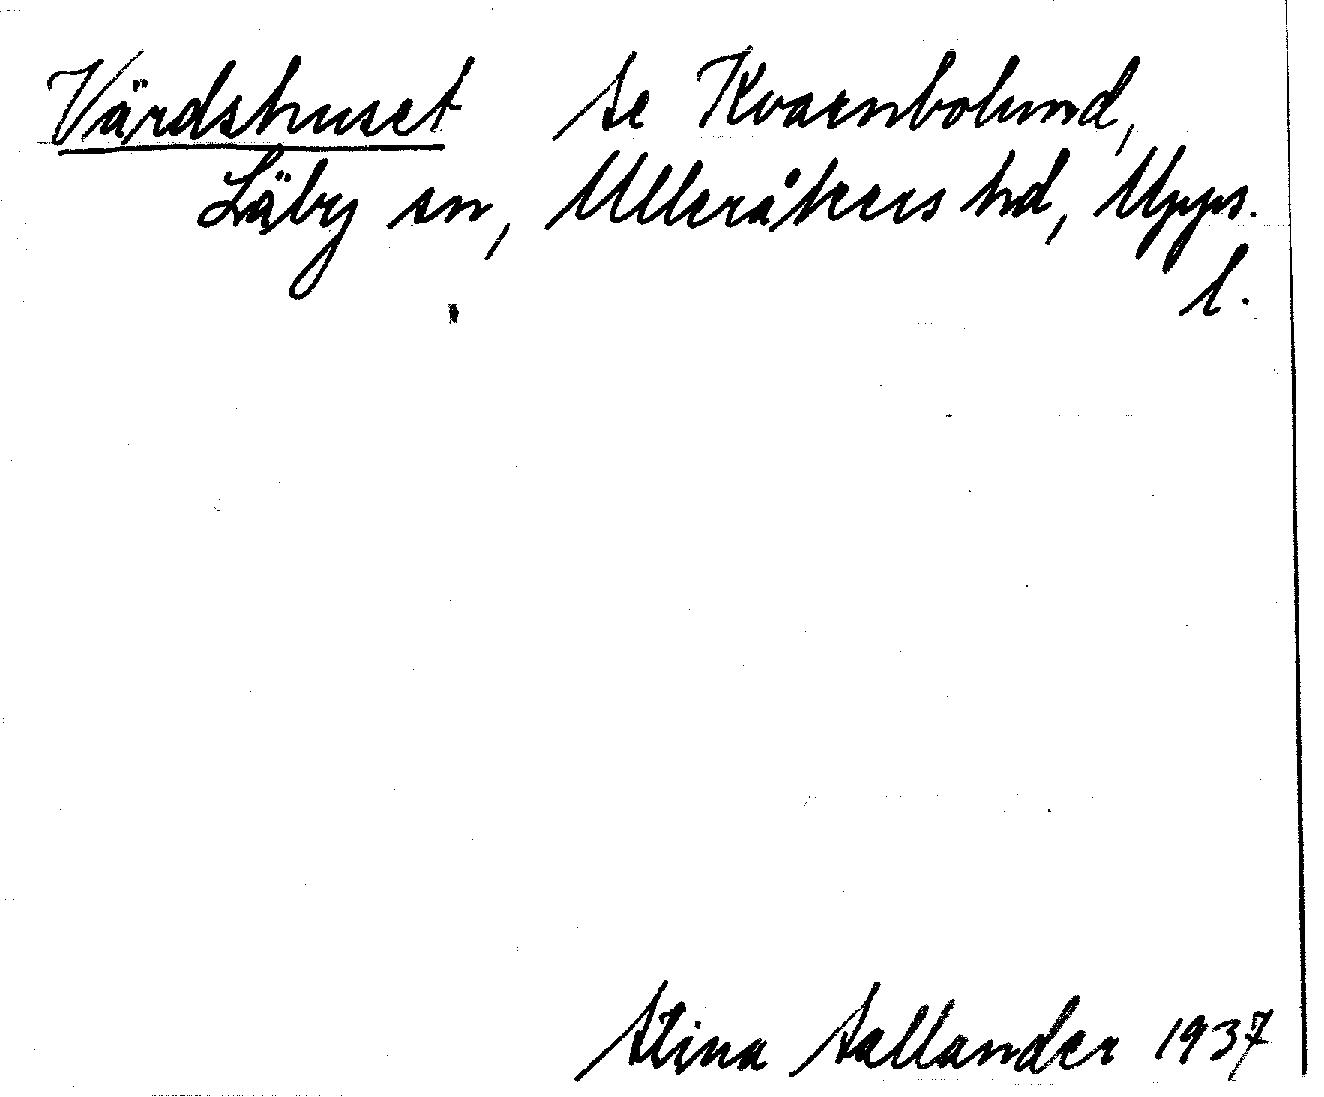 Värdshuset se Kvarnbolund,
Läby sn, Ulleråkers hd, Upps.
l.
Stina Sallander 1937